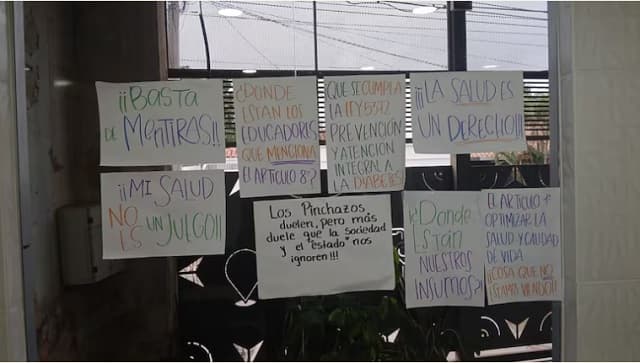 ¡¡BASTA
DE MENTIRAS!!
¿DONDE
ESTAN LOS
EDUCADORES
QUE MENCIONA
EL ARTICULO 8°?
QUE SE CUMPLA
LA LEY 5372
PREVENCIÓN
Y ATENCIÓN
INTEGRAL A
LA DIABETES
¡¡LA SALUD ES
UN DERECHO!!
¡¡MI SALUD
NO ES UN JUEGO!!
Los Pinchazos
duelen, pero más
duele que la sociedad
y el "estado" nos
ignoren!!!
¿Donde
ESTÁN
NUESTROS
INSUMOS?
EL ARTICULO 1
OPTIMIZAR LA
SALUD Y CALIDAD
DE VIDA
¡¡COSA QUE NO
ESTAMOS VIENDO!!